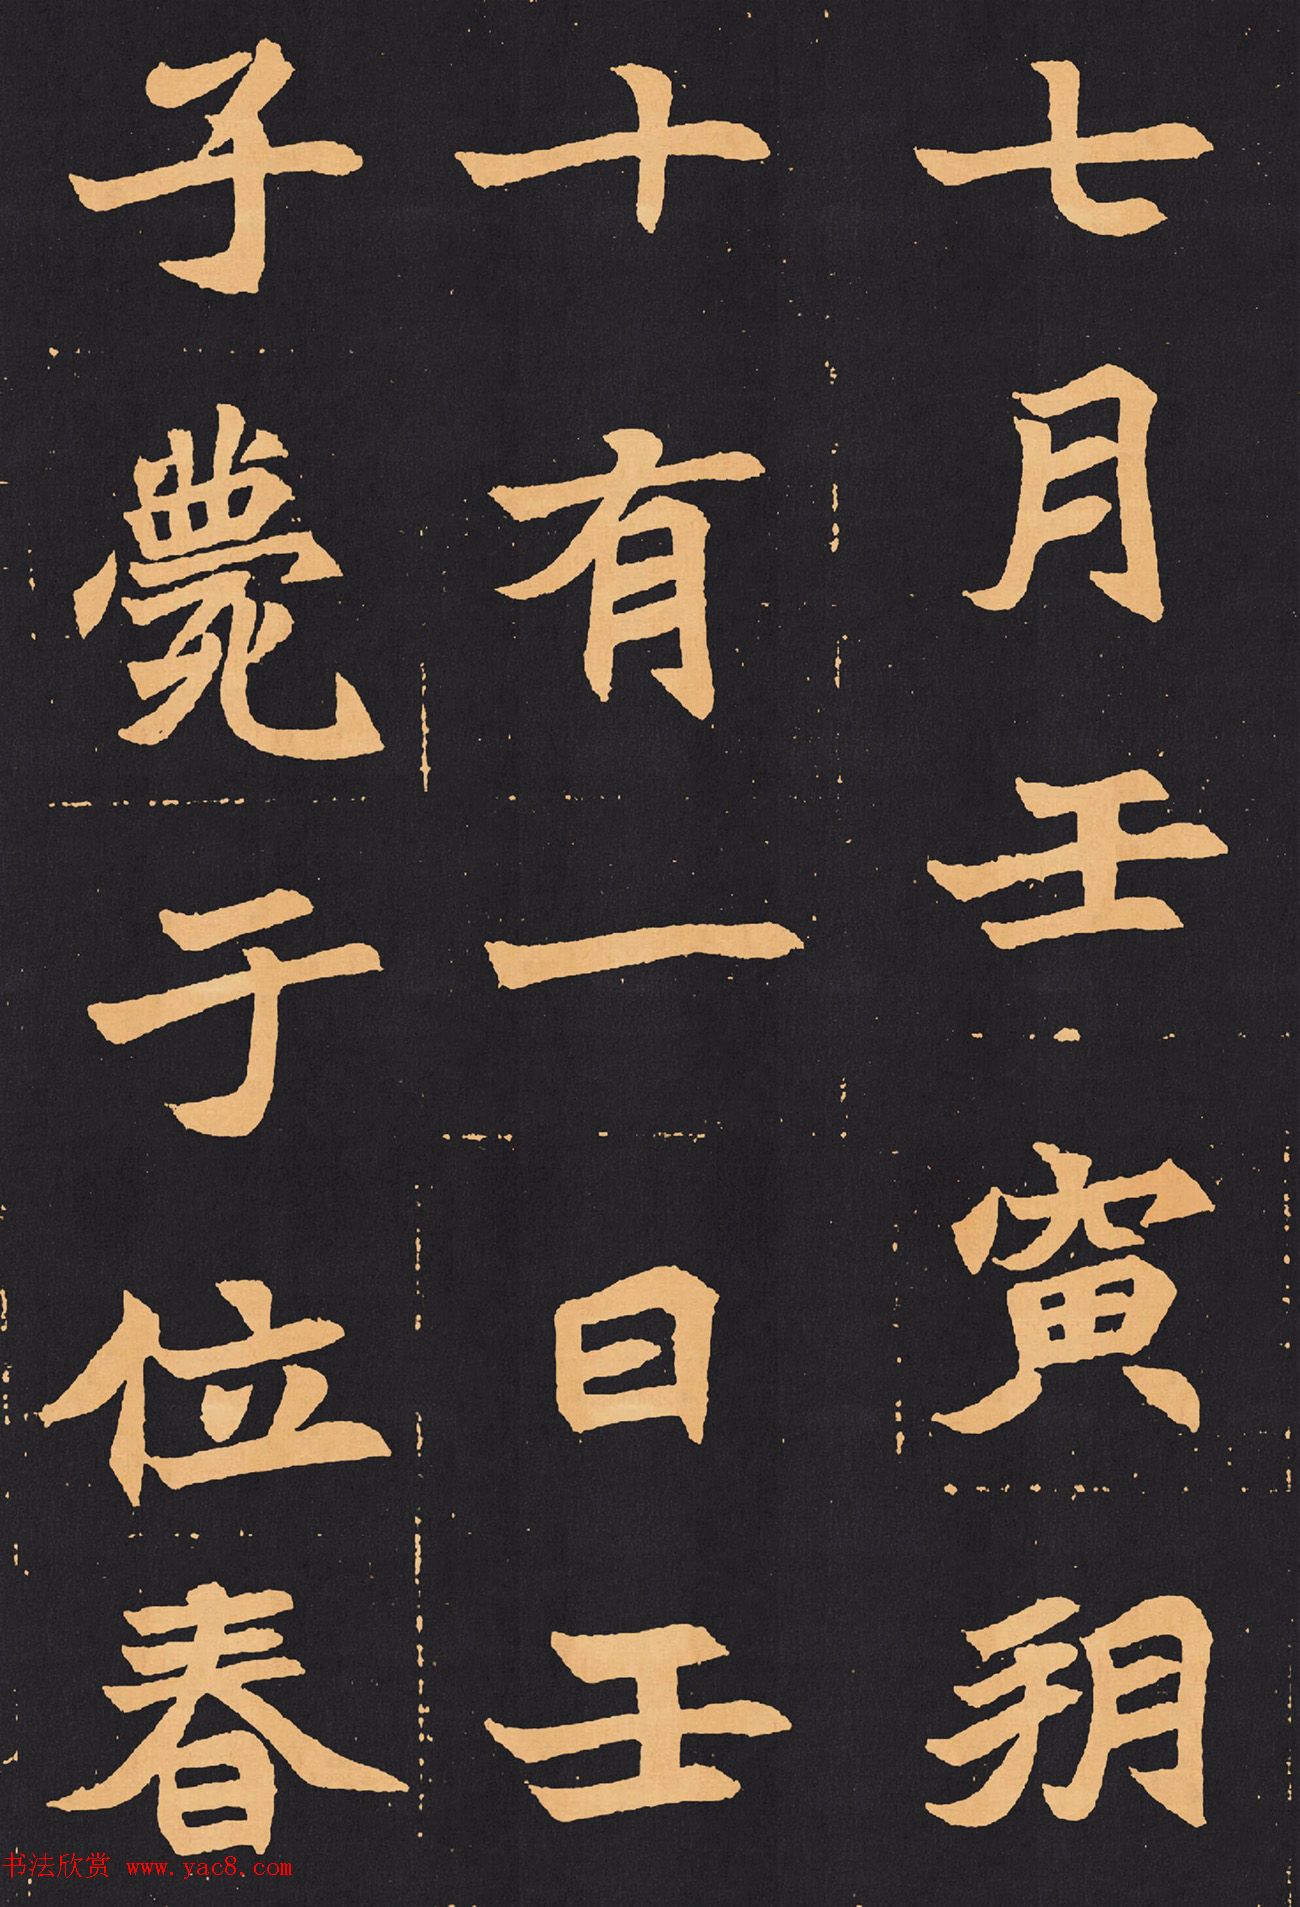 七月壬寅朔
十有一日壬
子薨于位春
书法欣赏 www.yac8.com